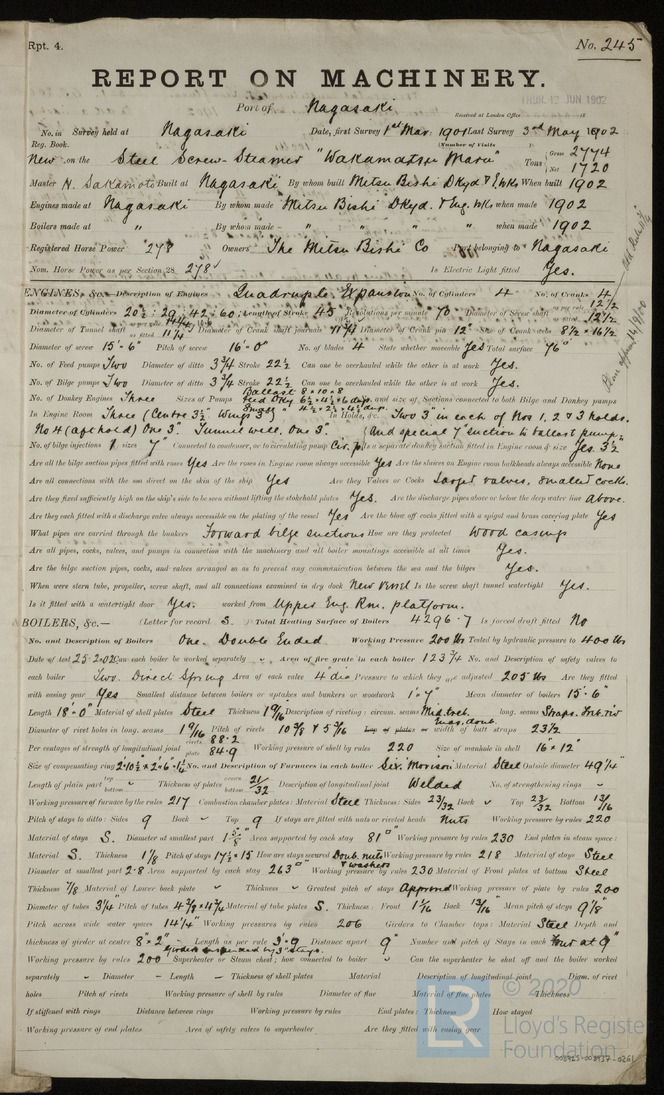 Rpt. 4.
No. 245
REPORT ON MACHINERY.
Port of Nagasaki
Received at London Office THUR. 12 JUN 1902
No. in Survey held at Nagasaki Date, first Survey 1st Mar: 1901 Last Survey 3rd May 1902
Reg. Book. (Number of Visits
New on the Steel Screw Steamer "Wakamatsu Maru" Tons Gross 2774 Net 1720
Master N. Sakamoto Built at Nagasaki By whom built Mitsu Bishi Dkyd & E. Wks When built 1902
Engines made at Nagasaki By whom made Mitsu Bishi Dkyd. & Eng. Wks when made 1902
Boilers made at " By whom made " " " when made 1902
Registered Horse Power 278 Owners The Mitsu Bishi Co Port belonging to Nagasaki
Nom. Horse Power as per Section 28 278 Is Electric Light fitted Yes.
ENGINES, &c.— Description of Engines Quadruple Expansion No. of Cylinders 4 No. of Cranks 4
Diameter of Cylinders 20½: 29: 42: 60: Length of Stroke 45 Revolutions per minute 70 Diameter of Screw shaft as per rule 12½ as fitted 12½
Diameter of Tunnel shaft as fitted 11¼ Diameter of Crank shaft journals 11¾ Diameter of Crank pin 12" Size of Crank webs 8½ × 16½
Diameter of screw 15'-6" Pitch of screw 16'-0" No. of blades 4 State whether moveable Yes Total surface 76
No. of Feed pumps Two Diameter of ditto 3¾ Stroke 22½ Can one be overhauled while the other is at work Yes.
No. of Bilge pumps Two Diameter of ditto 3¾ Stroke 22½ Can one be overhauled while the other is at work Yes.
No. of Donkey Engines Three Sizes of Pumps Ballast 8 × 10 × 8 Feed Dky 6½ × 4½ × 6 dup. 4½ × 2¾ × 4½ dup. No. and size of Suctions connected to both Bilge and Donkey pumps
In Engine Room Three (Centre 3½" Wings 3" In Holds, &c. Two 3" in each of Nos 1, 2 & 3 holds.
No 4 (aft hold) One 3". Tunnel well. One 3". (And special 7" suction to ballast pump.
No. of bilge injections 1 sizes 7" Connected to condenser, or to circulating pump Cir. p. Is a separate donkey suction fitted in Engine room & size Yes. 3½
Are all the bilge suction pipes fitted with roses Yes Are the roses in Engine room always accessible Yes Are the sluices on Engine room bulkheads always accessible None
Are all connections with the sea direct on the skin of the ship Yes Are they Valves or Cocks Larger valves, smaller cocks.
Are they fixed sufficiently high on the ship's side to be seen without lifting the stokehold plates Yes. Are the discharge pipes above or below the deep water line above.
Are they each fitted with a discharge valve always accessible on the plating of the vessel Yes Are the blow off cocks fitted with a spigot and brass covering plate Yes
What pipes are carried through the bunkers Forward bilge suctions How are they protected Wood casings
Are all pipes, cocks, valves, and pumps in connection with the machinery and all boiler mountings accessible at all times Yes.
Are the bilge suction pipes, cocks, and valves arranged so as to prevent any communication between the sea and the bilges Yes.
When were stern tube, propeller, screw shaft, and all connections examined in dry dock New Vessel Is the screw shaft tunnel watertight Yes.
Is it fitted with a watertight door Yes. worked from Upper Eng. Rm. platform.
BOILERS, &c.— (Letter for record S. Total Heating Surface of Boilers 4296.7 Is forced draft fitted No
No. and Description of Boilers One. Double Ended Working Pressure 200 lbs Tested by hydraulic pressure to 400 lbs
Date of test 25.2.02 Can each boiler be worked separately Area of fire grate in each boiler 123¾ No. and Description of safety valves to
each boiler Two. Direct Spring Area of each valve 4 dia Pressure to which they are adjusted 205 lbs Are they fitted
with easing gear Yes Smallest distance between boilers or uptakes and bunkers or woodwork 1'-7" Mean diameter of boilers 15'-6"
Length 18'-0" Material of shell plates Steel Thickness 1 9/16 Description of riveting: circum. seams Mid. treb. Ends. doub. long. seams Straps. Treb. riv
Diameter of rivet holes in long. seams 1 9/16 Pitch of rivets 10⅝ & 5 5/16 Lap of plates or width of butt straps 23½
Per centages of strength of longitudinal joint rivets 88.2 plate 84.9 Working pressure of shell by rules 220 Size of manhole in shell 16" × 12"
Size of compensating ring No. and Description of Furnaces in each boiler Six. Morison Material Steel Outside diameter 49¼"
Length of plain part top bottom Thickness of plates crown bottom 21/32 Description of longitudinal joint Welded No. of strengthening rings
Working pressure of furnace by the rules 217 Combustion chamber plates: Material Steel Thickness: Sides 23/32 Back Top 23/32 Bottom 13/16
Pitch of stays to ditto: Sides 9 Back Top 9 If stays are fitted with nuts or riveted heads Nuts Working pressure by rules 220
Material of stays S. Diameter at smallest part 1 5/8" Area supported by each stay 81 Working pressure by rules 230 End plates in steam space:
Material S. Thickness 1⅛ Pitch of stays 17½ × 15 How are stays secured Doub. nuts & washers Working pressure by rules 218 Material of stays Steel
Diameter at smallest part 2.8 Area supported by each stay 263 Working pressure by rules 230 Material of Front plates at bottom Steel
Thickness ⅞ Material of Lower back plate Thickness Greatest pitch of stays Approved Working pressure of plate by rules 200
Diameter of tubes 3¼ Pitch of tubes 4⅜ × 4¾ Material of tube plates S. Thickness: Front 1 1/16 Back 13/16" Mean pitch of stays 9⅛
Pitch across wide water spaces 14¼" Working pressures by rules 206 Girders to Chamber tops: Material Steel Depth and
thickness of girder at centre 8" × 2" Length as per rule 3'-9 Distance apart 9" Number and pitch of Stays in each Four at 9"
Girders suspended by 3" stays.
Working pressure by rules 200 Superheater or Steam chest; how connected to boiler Can the superheater be shut off and the boiler worked
separately Diameter Length Thickness of shell plates Material Description of longitudinal joint Diam. of rivet
holes Pitch of rivets Working pressure of shell by rules Diameter of flue Material of flue plates Thickness
If stiffened with rings Distance between rings Working pressure by rules End plates: Thickness How stayed
Working pressure of end plates Area of safety valves to superheater Are they fitted with easing gear
© 2020
LR
Lloyd's Register
Foundation
008923-008937-0261